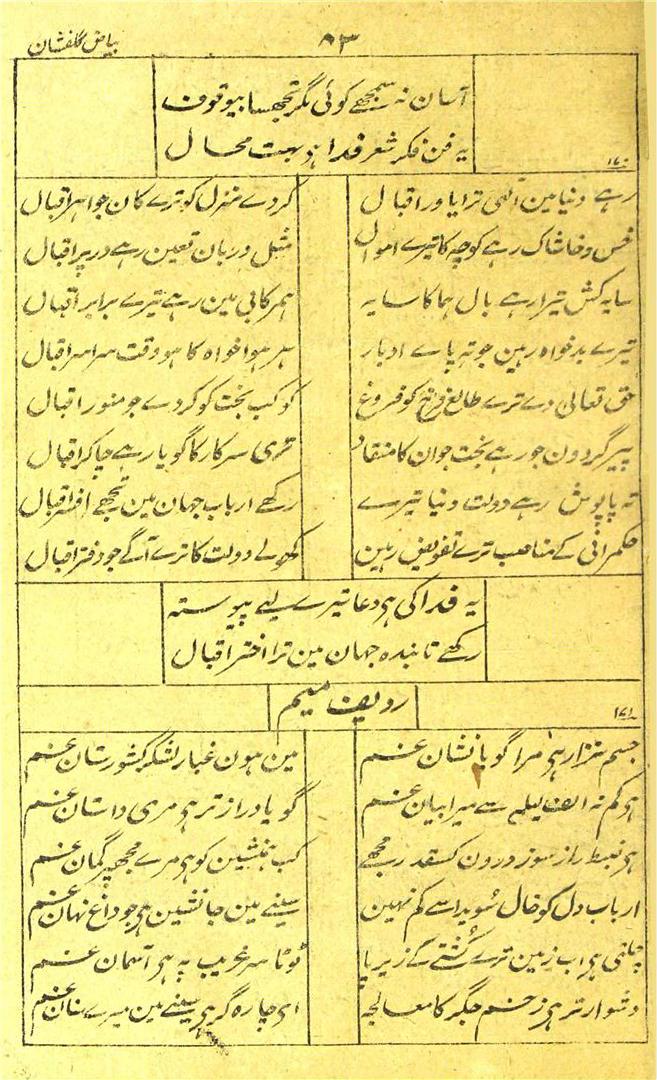 بیاض گلفشان
۹۳
آسان نہ سمجھے کوئی مگر تجھسا بیوقوف
یہ فن فکر شعر فدا ہے بہت محال
۱۷۰
رہے دنیا مین الٰہی ترا یاور اقبال
کردے منزل کو ترے کان جواہر اقبال
خس و خاشاک رہے کوچہ کا تیرے اموال
مثل دربان تعین رہے در پر اقبال
سایہ کش تیرا رہے بال ہما کا سایہ
ہمرکابی مین رہے تیرے برابر اقبال
تیرے بدخواہ رہین جوتہ پاے ادبار
ہر ہوا خواہ کا ہو وقت سراسر اقبال
حق تعالیٰ دے ترے طالع فرخ کو فروغ
کوکب بخت کو کردے جو منور اقبال
پیر گردون جو رہے بخت جوان کا منقاد
تری سرکار کا گویا رہے چاکر اقبال
تہ پاپوش رہے دولت دنیا تیرے
رکھے ارباب جہان مین تجھے افسر اقبال
حکمرانی کے مناصب ترے تفویض رہین
کھولے دولت کا ترے آگے جو دفتر اقبال
یہ فدا کی ہی دعا تیرے لیے پیوستہ
رکھے تابندہ جہان مین ترا اختر اقبال
ردیف میم
۱۷۱
جسم نزار ہی مرا گویا نشان غم
مین ہون غبار لشکر کشورستان غم
ہو کم نہ الف لیلیٰ سے میرا بیان غم
گویا دراز تر ہی مری داستان غم
ہی ضبط راز سوز درون کسقدر مجھے
کب ہمنشین کو ہی مرے مجھپر گمان غم
ارباب دل کو خال سُویدا سے کم نہین
سینے مین جانشین ہی جو داغ نہان غم
چلتی ہی اب زمین ترے کُشتے کے زیر پا
ٹوٹا سر غریب پہ ہی آسمان غم
دشوار تر ہی زخم جگر کا معالجہ
ای چارہ گر ہی سینے مین میرے سنان غم